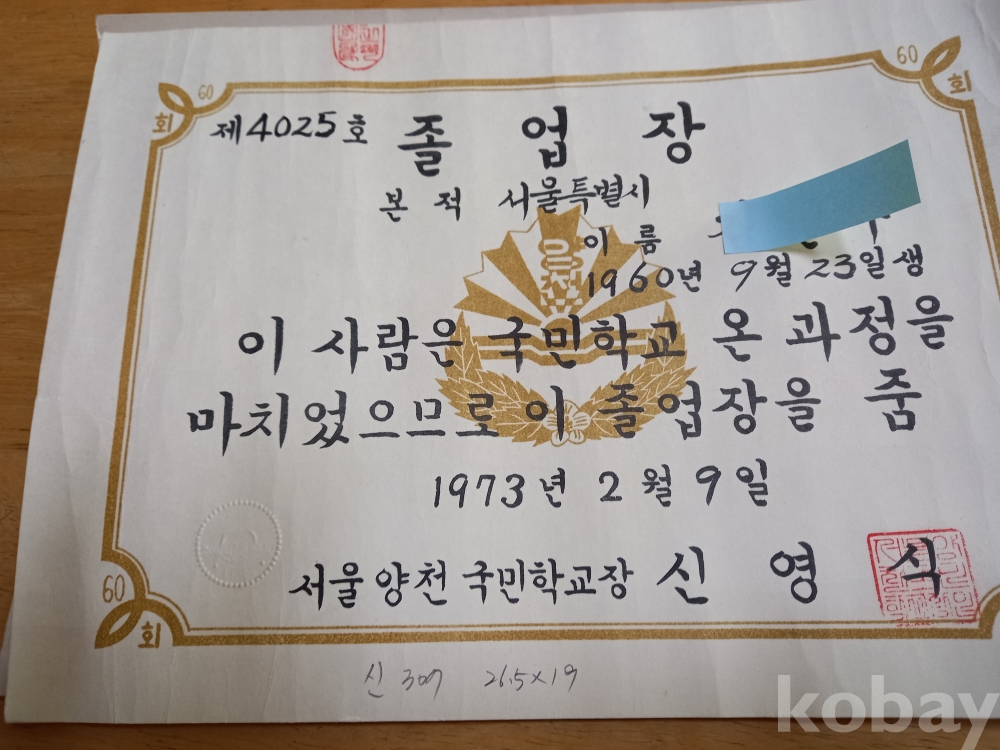 60 회
60 회
제4025호 졸업장
본적 서울특별시
이름
1960년 9월 23일생
이 사람은 국민학교 온 과정을
마치었으므로 이 졸업장을 줌
1973년 2월 9일
서울양천국민학교장 신영식
60 회
신 307 26.5×19
kobay